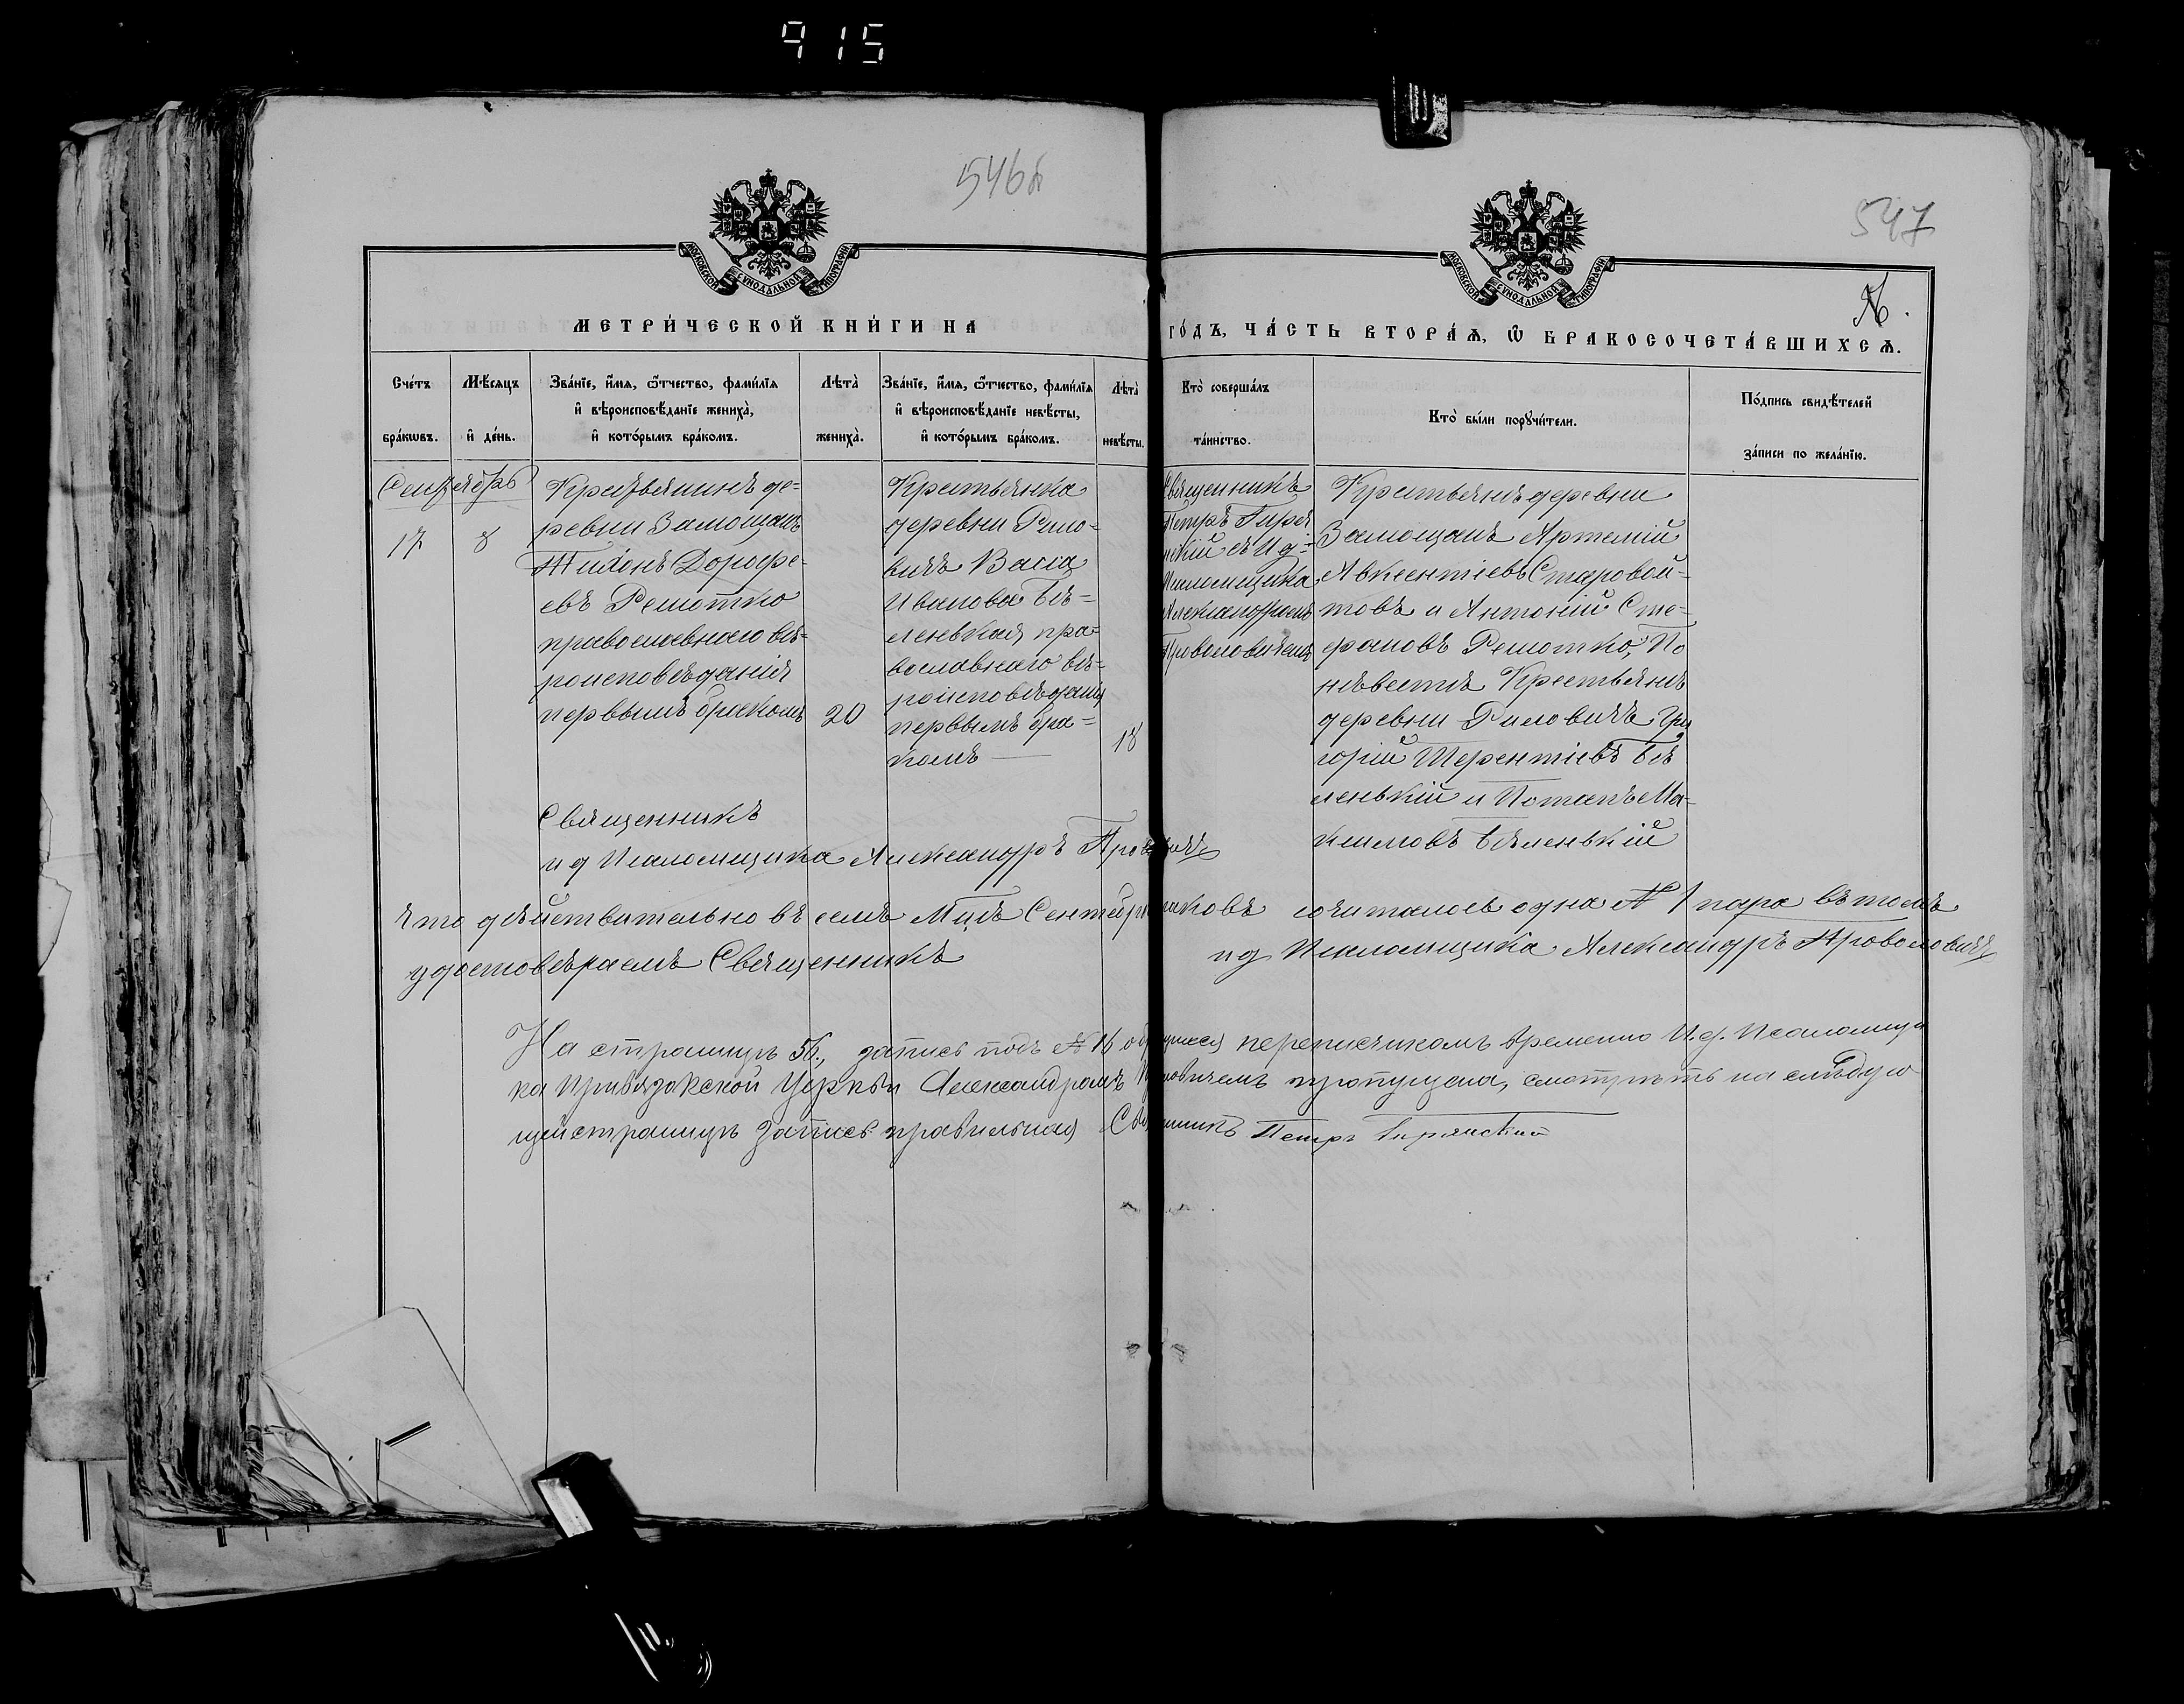 915
546б
547
МОСКОВСКОЙ СѴНОДАЛЬНОЙ ТИПОГРАФІИ
МОСКОВСКОЙ СѴНОДАЛЬНОЙ ТИПОГРАФІИ
МЕТРИ́ЧЕСКОЙ КНИ́ГИ НА
ГО́ДЪ, ЧА́СТЬ ВТОРА́Ѧ, Ѡ҆ БРАКОСОЧЕТА́ВШИХСѦ.
Сче́тъ бра́кѡвъ.
Мѣ́сѧцъ и҆ де́нь.
Зва́нїе, и҆́мѧ, ѻ҆́тчество, фами́лїѧ
и҆ вѣроисповѣ́данїе жениха̀,
и҆ кото́рымъ бра́комъ.
Лѣта̀ жениха̀.
Зва́нїе, и҆́мѧ, ѻ҆́тчество, фами́лїѧ
и҆ вѣроисповѣ́данїе невѣ́сты,
и҆ кото́рымъ бра́комъ.
Лѣта̀ невѣ́сты.
Кто̀ соверша́лъ та́инство.
Кто̀ бы́ли порꙋчи́тели.
По́дпись свидѣ́телей
за́писи по жела́нїю.
Сентябрь
17
8
Крестьянинъ де=
ревни Замощанъ
Тихонъ Дорофе-
евъ Решотко
православнаго вѣ-
роисповѣданія
первымъ бракомъ
20
Крестьянка
деревни Рило-
вичъ Васса
Иванова Бѣ=
ленькая, пра=
вославнаго вѣ=
роисповѣданія
первымъ бра=
комъ
18
Священникъ
Петръ
Псаломщика
Александромъ
Крестьяне деревни
Замощанъ Артемій
Авксентіевъ Старовой-
товъ и Антоній Сте-
фановъ Решотко, По
невѣстѣ Крестьяне
деревни Риловичъ Гри
горій Терентіевъ Бѣ
ленькій и Потапъ Ма-
ксимовъ Бѣленькій
Священникъ
и д Псаломщика Александръ
Что дѣйствительно въ семъ М-цѣ Сентябрѣ браковъ сочиталось одна № 1 пара въ томъ
удостовѣряемъ Священникъ
и д Псаломщика Александръ
На страницѣ 56, запись подъ № 16 переписчикомъ временно И.д. Псаломщи
ка Церкви Александромъ пропущена, смотрѣть на слѣдую
щей страницѣ запись правильная Священникъ Петръ